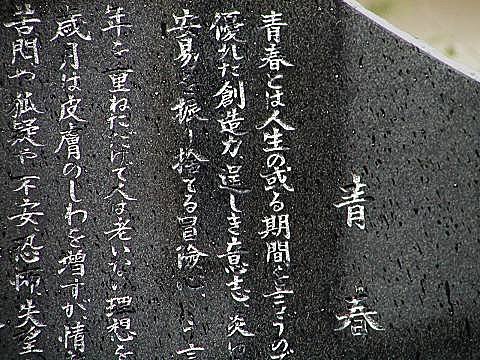 青春
青春とは人生の或る期間を言うので
優れた創造力逞しき意志炎
安易を振り捨てる冒険心
年を重ねただけで人は老いない理想を
歳月は皮膚のしわを増すが情
苦悶や狐疑や不安、恐怖、失望